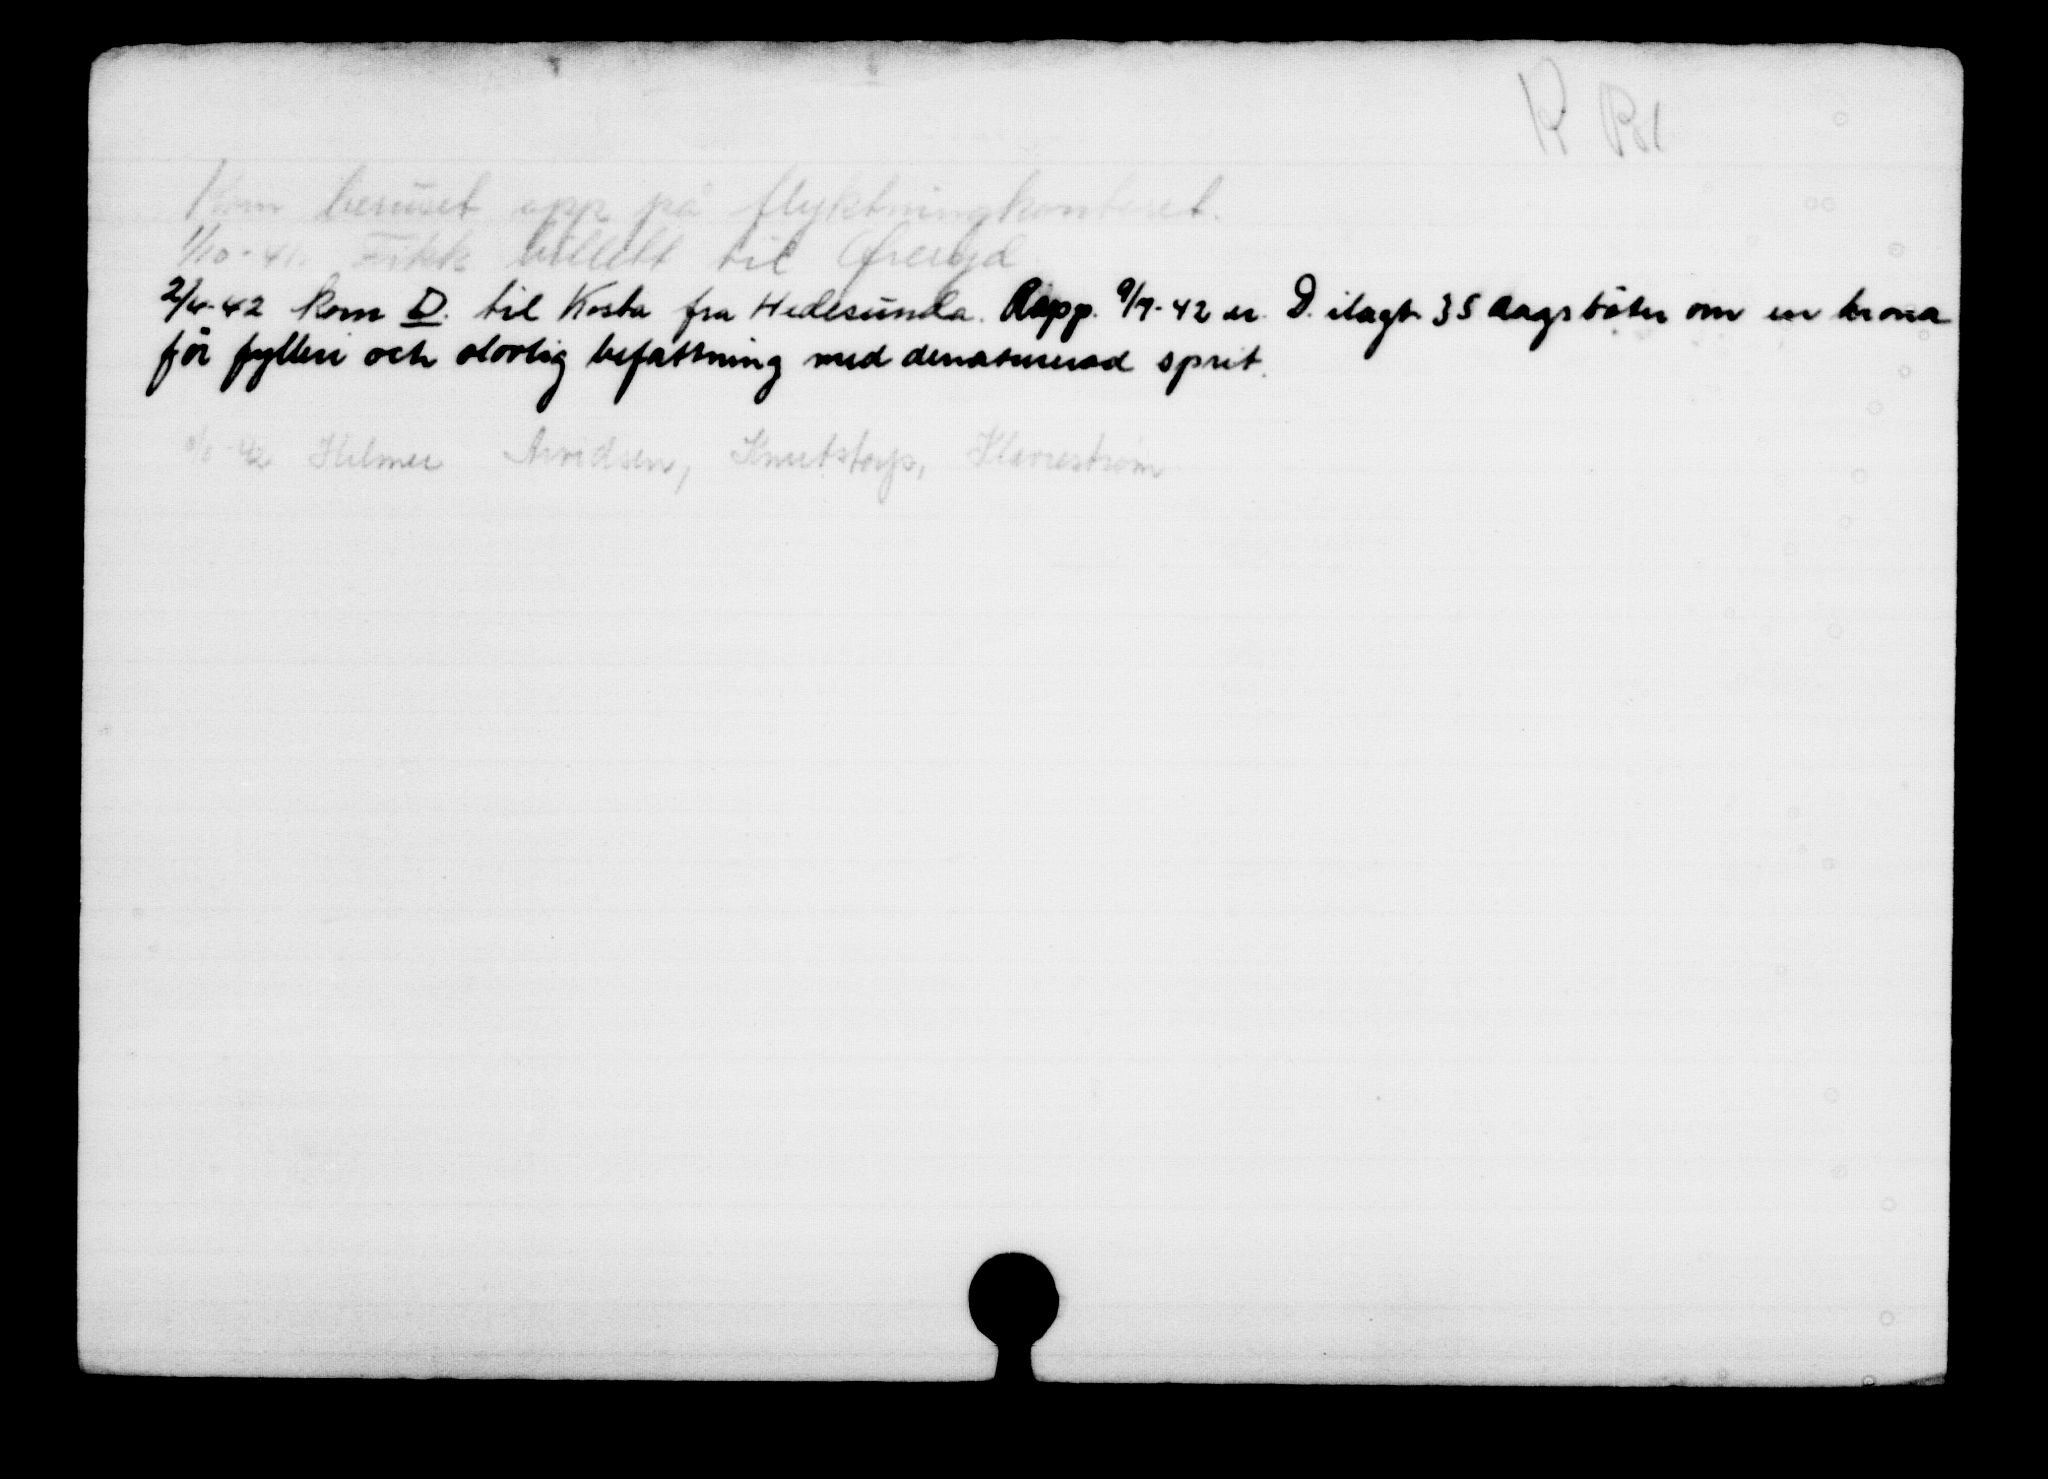 R Pol
Kom beruset opp på flyktningkontoret.
1/10-41. Fikk billett til
2/6-42 kom D. til Kosta fra Hedesunda. Rapp. 9/7-42 er D. ilagt 35 dagsböter om en krona
för fylleri och olovlig befattning med denaturerad sprit.
42 Hilmer Arvidsen, Knutstorp, Klavreström